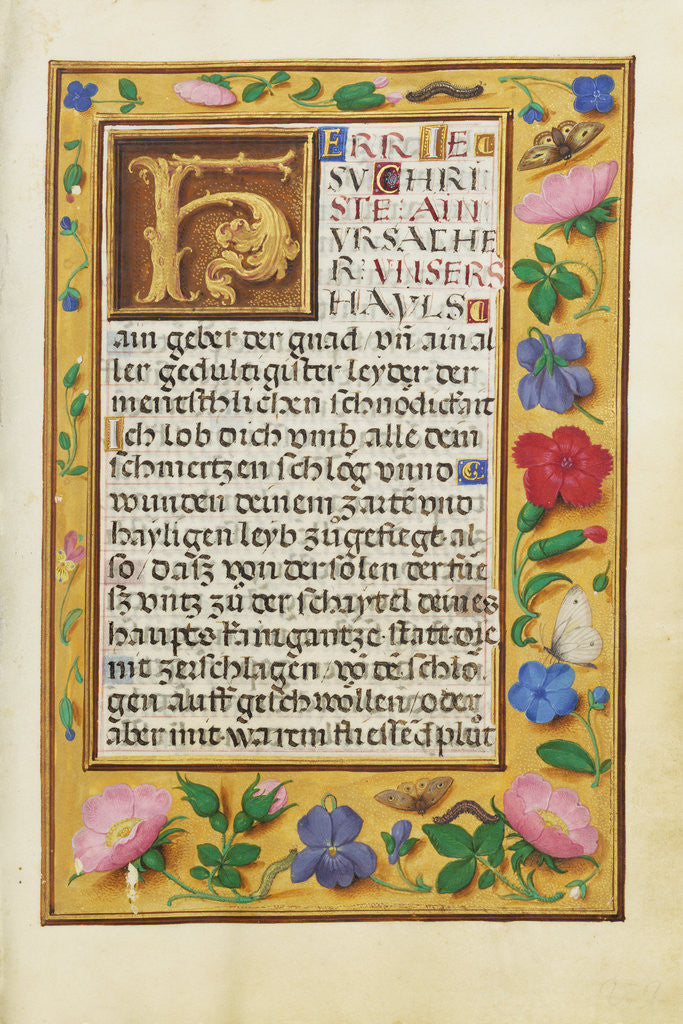 HERR IE
SV CHRI
STE: AIN
VRSACHE
R: VNSERS
HAYLS
ain geber der gnad / vn̄ ain al
ler gedultigister leyder der
mentschlichen schnödickait
Ich lob dich vmb alle dein
schmertzen schlög vnnd
wunden deinem zartē vnd
hayligen leyb zůgefiegt al
so / dasz von der solen der füe
sz vntz zů der schaytel deines
haupts kain gantze statt die
nit zerschlagen / vō dē schlö
gen auff geschwollen / oder
aber mit warm fliessēd plůt